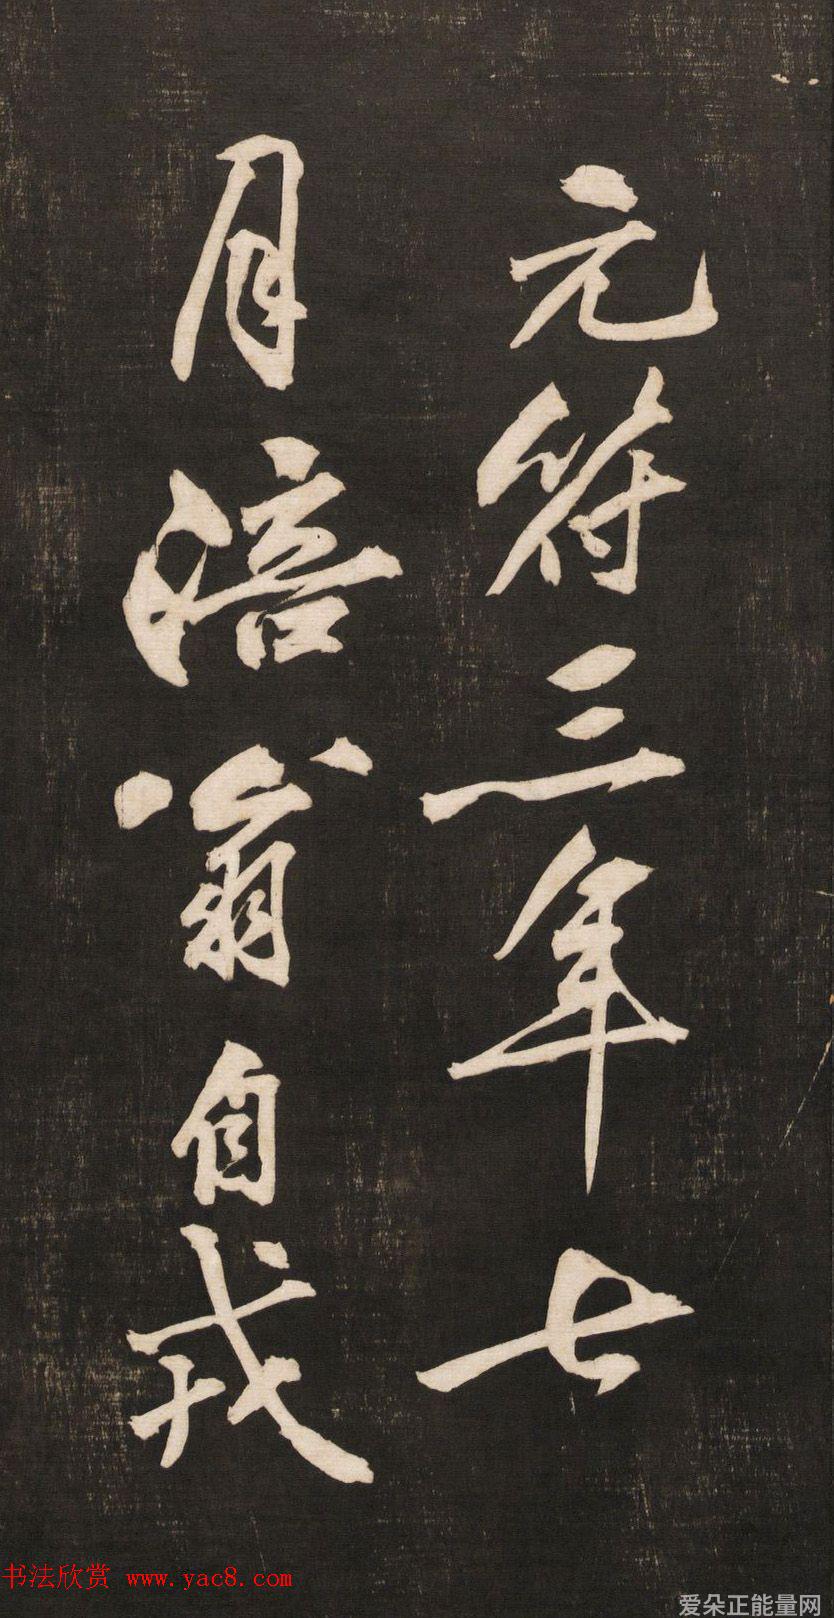 元符三年七
月涪翁自戎
书法欣赏 www.yac8.com
爱朵正能量网